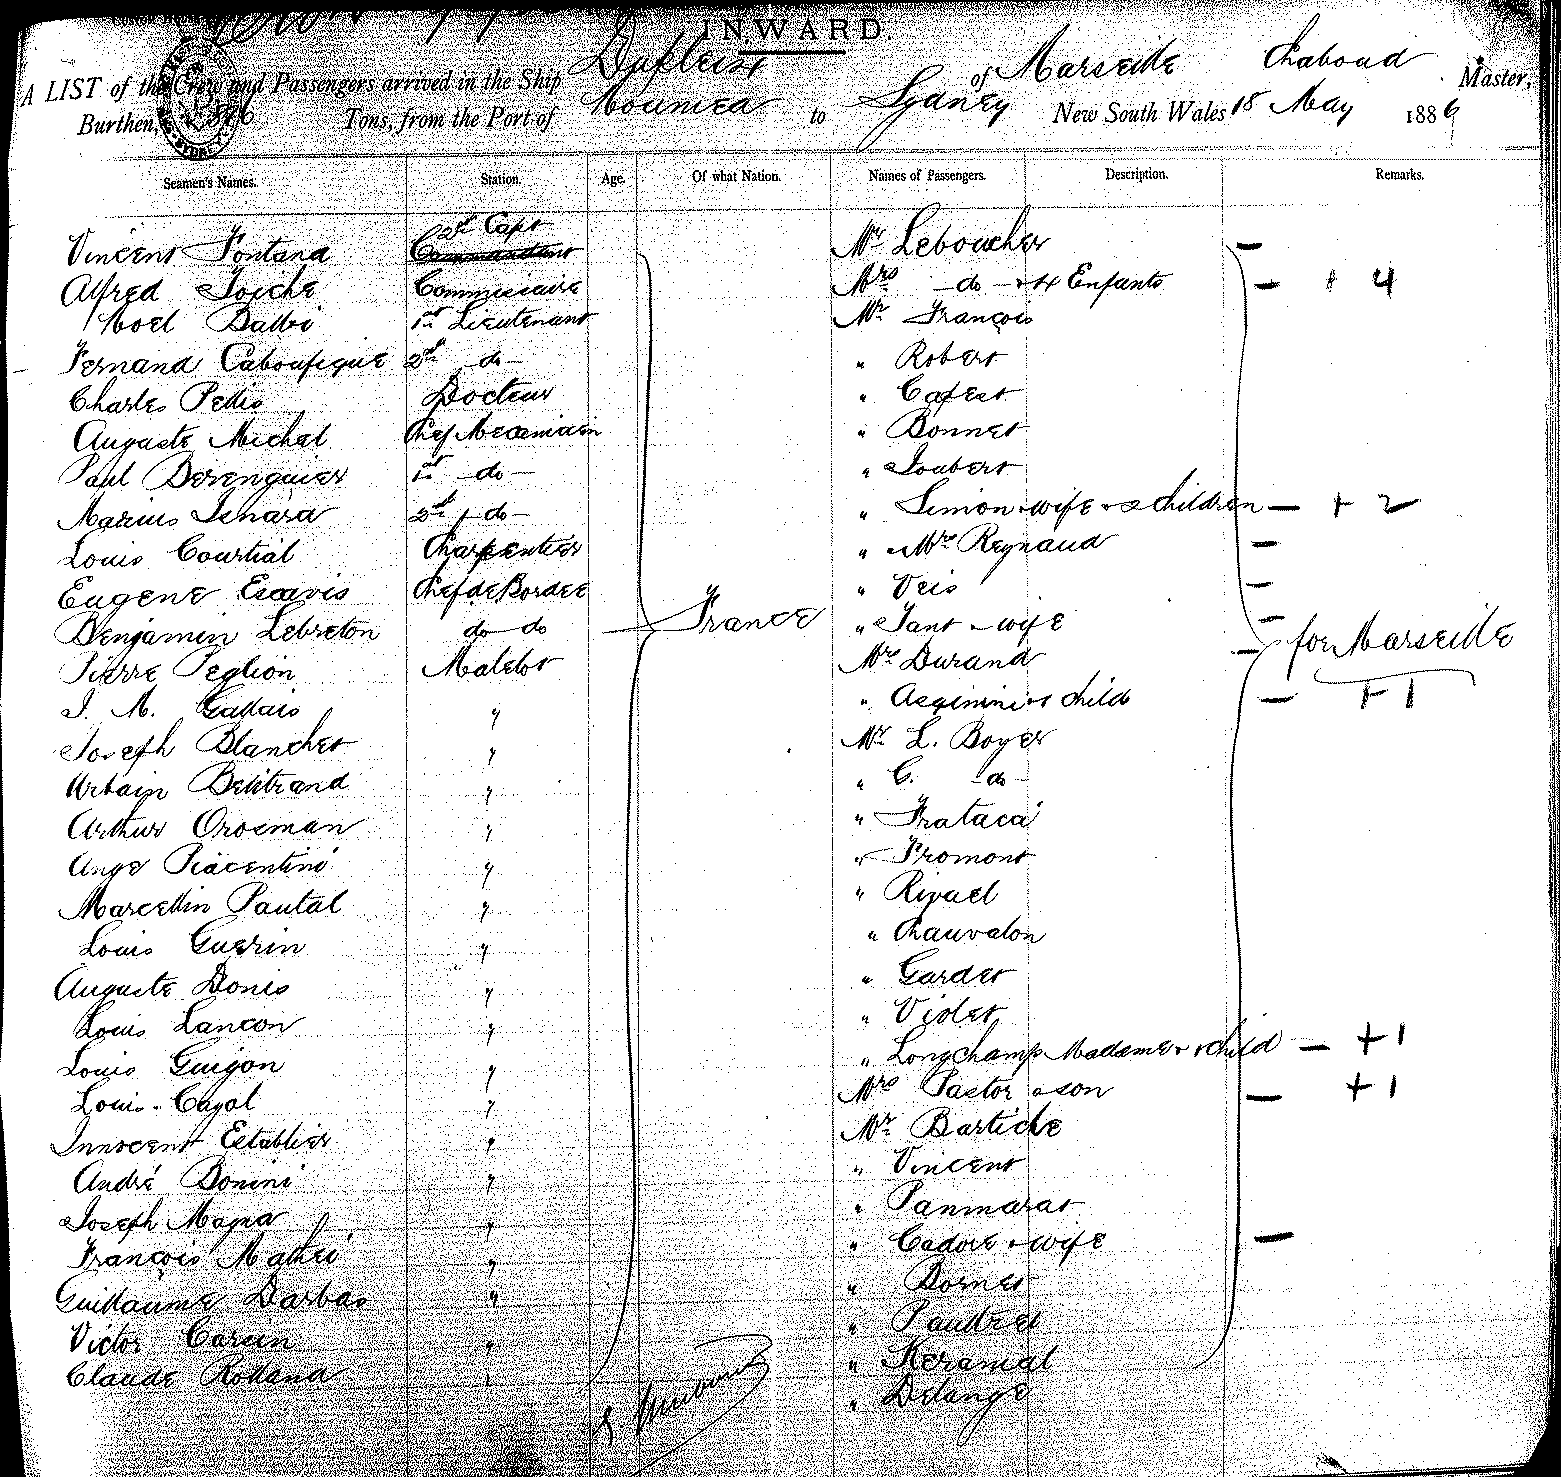 INWARD.
A LIST of the Crew and Passengers arrived in the Ship Dupleix of Marseille Chaboud Master,
Burthen, Tons, from the Port of Noumea to Sydney New South Wales 18 May 1886
Seamen's Names. Station. Age. Of what Nation. Names of Passengers. Description. Remarks.
2nd Capt
Vincent Fontana Commandant Mr Leboucher —
Alfred Commissaire Mrs —do— + 4 Enfants — + 4
Noel Balbi 1st Lieutenant Mr François
Fernand 2nd —do— " Robert
Charles Docteur "
Auguste Michel Chef Mecanicien " Bonnet
Paul Berenguier 1st —do— " Joubert
Marius Isnard 2nd —do— " Simon + wife + 2 children — + 2
Louis Courtial Charpentier " + Mrs Reynaud —
Eugene Escavis Chef de Bordee " Veis —
Benjamin Lebreton do do France " Tant + wife —
Pierre Peglion Matelot Mrs Durand — for Marseille
J. M. Gallais " " + child — + 1
Joseph Blanchet " Mr L. Boyer
Urbain " " C. —do—
Arthur Orosman " " Frataca
Ange Piacentini " " Fromont
Marcellin Pautal " " Rivael
Louis Guerin " " Chauvalon
Auguste Donis " " Gardet
Louis Lancon " " Violet
Louis Guigon " " Longchamp Madame + child — + 1
Louis Cayol " Mrs Pastor + son — + 1
Innocent Establier " Mr Barticle
André Bonini " " Vincent
Joseph Magna " " Panmarat
François Mattei " " Cadore + wife —
Guillaume Darbas " " Dornet
Victor " " Pautrel
Claude Rolland " " Keranial
" Delange